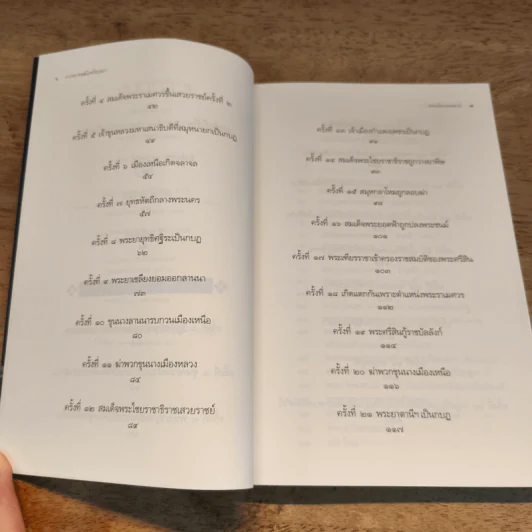 ครั้งที่ ๔ สมเด็จพระราเมศวรขึ้นเสวยราชย์ครั้งที่ ๒
๔๒
ครั้งที่ ๕ เจ้าขุนหลวงมหาเสนาธิบดีที่สมุหนายกเป็นกบฏ
๔๙
ครั้งที่ ๖ เมืองเหนือเกิดจลาจล
๕๔
ครั้งที่ ๗ ยุทธหัตถีกลางพระนคร
๕๗
ครั้งที่ ๘ พระยายุทธิศฐิระเป็นกบฏ
๖๒
ครั้งที่ ๙ พระยาเชลียงยอมออกลานนา
๗๓
ครั้งที่ ๑๐ ขุนนางลานนารบกวนเมืองเหนือ
๘๐
ครั้งที่ ๑๑ ฆ่าพวกขุนนางเมืองหลวง
๘๔
ครั้งที่ ๑๒ สมเด็จพระไชยราชาธิราชเสวยราชย์
๘๙
ครั้งที่ ๑๓ เจ้าเมืองกำแพงเพชรเป็นกบฏ
ครั้งที่ ๑๔ สมเด็จพระไชยราชาธิราชถูกวางยาพิษ
ครั้งที่ ๑๕ สมุหกลาโหมถูกลอบฆ่า
ครั้งที่ ๑๖ สมเด็จพระยอดฟ้าถูกปลงพระชนม์
๑๐๑
ครั้งที่ ๑๗ พระเทียรราชาเข้าครองราชสมบัติของพระศรีสิน
๑๐๓
ครั้งที่ ๑๘ เกิดแตกกันเพราะตำแหน่งพระราเมศวร
๑๑๒
ครั้งที่ ๑๙ พระศรีสินกู้ราชบัลลังก์
๑๑๔
ครั้งที่ ๒๐ ฆ่าพวกขุนนางเมืองเหนือ
๑๑๖
ครั้งที่ ๒๑ พระยาตานีฯ เป็นกบฏ
๑๑๗